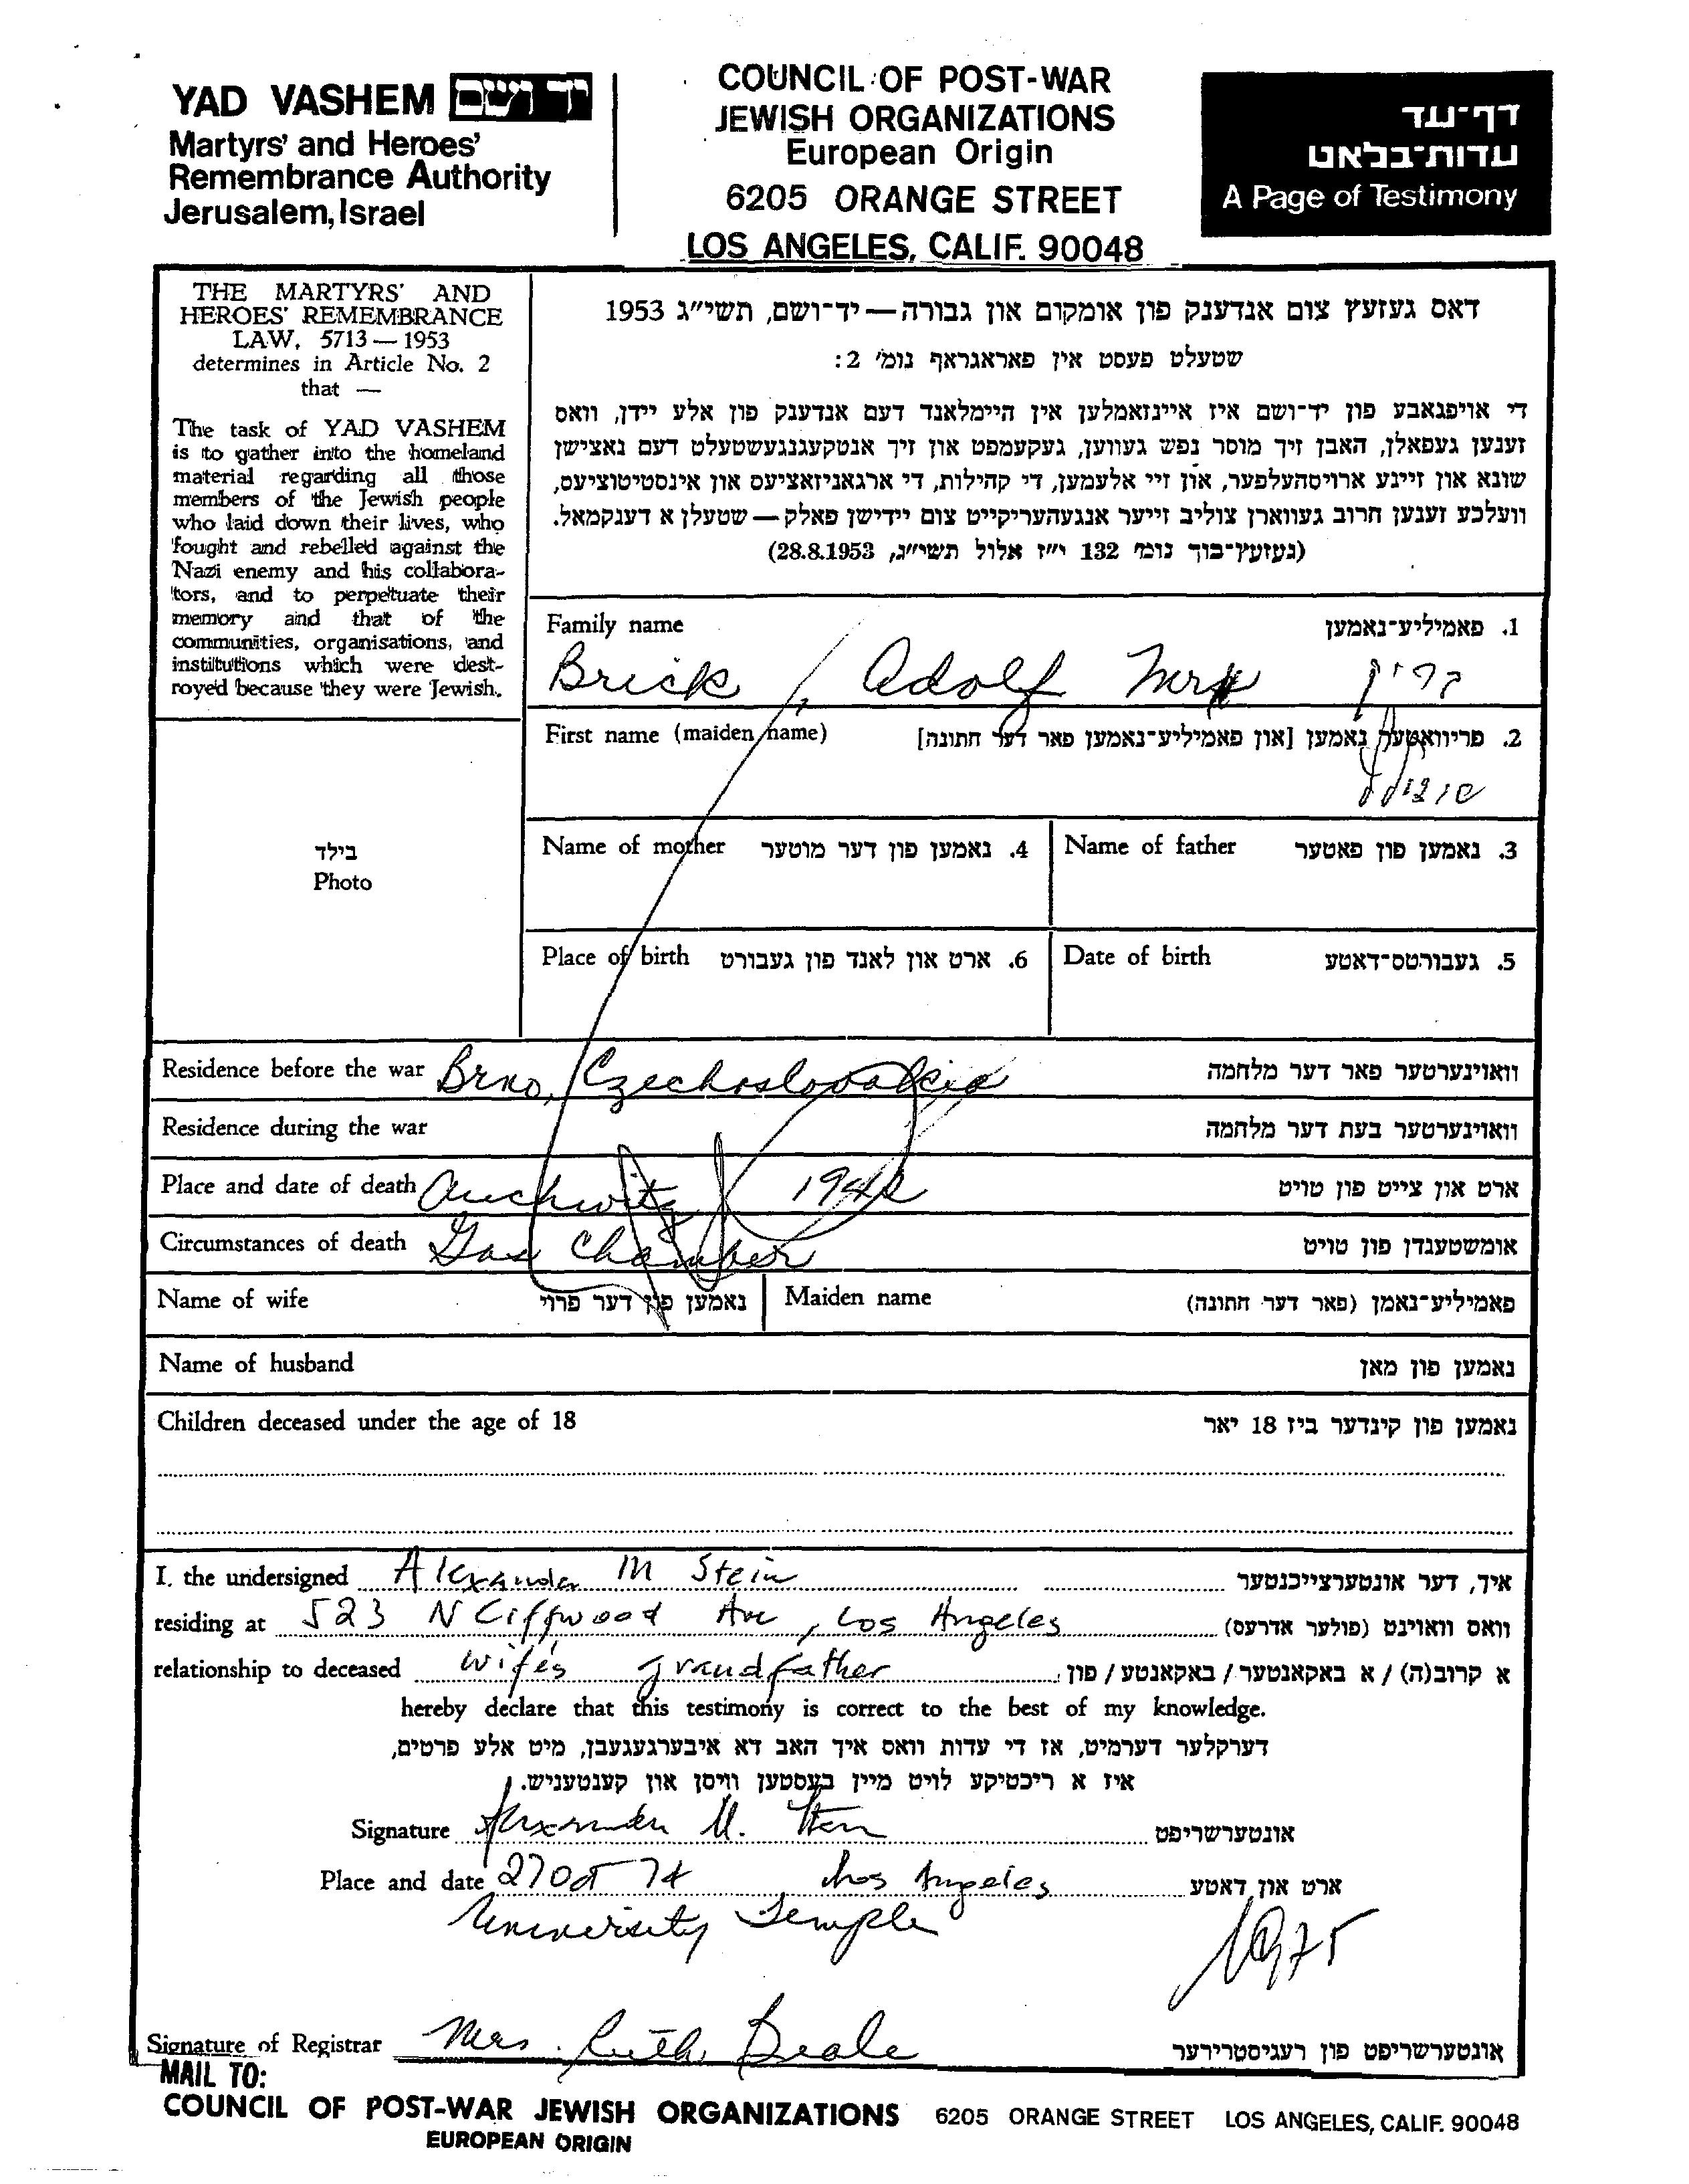 YAD VASHEM יד ושם
Martyrs' and Heroes'
Remembrance Authority
Jerusalem, Israel
COUNCIL OF POST-WAR
JEWISH ORGANIZATIONS
European Origin
6205 ORANGE STREET
LOS ANGELES, CALIF. 90048
דף-עד
עדות-בלאט
A Page of Testimony
THE MARTYRS' AND
HEROES' REMEMBRANCE
LAW, 5713 — 1953
determines in Article No. 2
that —
The task of YAD VASHEM
is to gather into the homeland
material regarding all those
members of the Jewish people
who laid down their lives, who
fought and rebelled against the
Nazi enemy and his collabora-
tors, and to perpetuate their
memory and that of the
communities, organisations, and
institutions which were dest-
royed because they were Jewish.
דאס געזעץ צום אנדענק פון אומקום און גבורה — יד-ושם, תשי"ג 1953
שטעלט פעסט אין פאראגראף נומ' 2:
די אויפגאבע פון יד-ושם איז איינזאמלען אין היימלאנד דעם אנדענק פון אלע יידן, וואס
זענען געפאלן, האבן זיך מוסר נפש געווען, געקעמפט און זיך אנטקעגנגעשטעלט דעם נאצישן
שונא און זיינע ארויסהעלפער, און זיי אלעמען, די קהילות, די ארגאניזאציעס און אינסטיטוציעס,
וועלכע זענען חרוב געווארן צוליב זייער אנגעהעריקייט צום יידישן פאלק — שטעלן א דענקמאל.
(געזעץ-בוך נומ' 132 י"ז אלול תשי"ג, 28.8.1953)
Family name
1. פאמיליע-נאמען
Brick, Adolf
First name (maiden name)
2. פריוואטער נאמען [און פאמיליע-נאמען פאר דער חתונה]
Name of mother 4. נאמען פון דער מוטער
Name of father 3. נאמען פון פאטער
Place of birth 6. ארט און לאנד פון געבורט
Date of birth 5. געבורטס-דאטע
בילד
Photo
Residence before the war Brno, Czechoslovakia וואוינערטער פאר דער מלחמה
Residence during the war וואוינערטער בעת דער מלחמה
Place and date of death Auchwitz ארט און צייט פון טויט
Circumstances of death Gas Chamber אומשטענדן פון טויט
Name of wife נאמען פון דער פרוי Maiden name פאמיליע-נאמן (פאר דער חתונה)
Name of husband נאמען פון מאן
Children deceased under the age of 18 נאמען פון קינדער ביז 18 יאר
I, the undersigned Alexander M Stein איך, דער אונטערצייכנטער
residing at 523 N Cliffwood Ave, Los Angeles וואס וואוינט (פולער אדרעס)
relationship to deceased wife's grandfather א קרוב(ה) / א באקאנטער / באקאנטע / פון
hereby declare that this testimony is correct to the best of my knowledge.
דערקלער דערמיט, אז די עדות וואס איך האב דא איבערגעגעבן, מיט אלע פרטים,
איז א ריכטיקע לויט מיין בעסטען וויסן און קענטעניש.
Signature Alexander M. Stein אונטערשריפט
Place and date 27 Oct 74 Los Angeles ארט און דאטע
University Temple
1975
Signature of Registrar Mrs. Ruth Beale אונטערשריפט פון רעגיסטרירער
MAIL TO:
COUNCIL OF POST-WAR JEWISH ORGANIZATIONS 6205 ORANGE STREET LOS ANGELES, CALIF. 90048
EUROPEAN ORIGIN